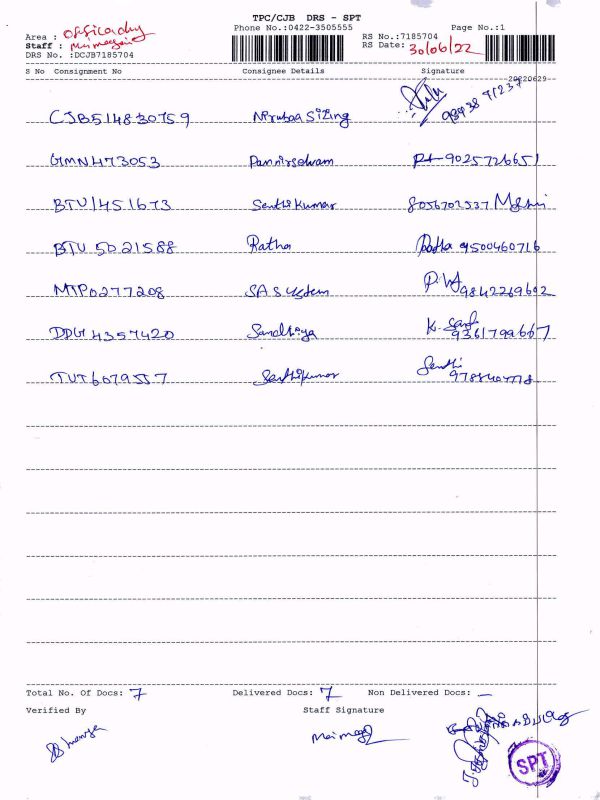 TPC/CJB DRS - SPT
Phone No.:0422-3505555 Page No.:1
Area :
Staff :
DRS No. :DCJB7185704
RS No.:7185704
RS Date: 30/06/22
S No Consignment No Consignee Details Signature
20220629
CJB514830759 Nirubaa Sizing
GMN473053 Pannirselvam 9025726651
BTU1451673 Senthilkumar 8056702537
BTU5021588 Ratha Ratha 9500460716
MTP0277208 SA System 9842269602
DDG4357420 Sandhiya 9361799667
TUT6079557 Senthilkumar Senthi
Total No. Of Docs: 7 Delivered Docs: 7 Non Delivered Docs: -
Verified By Staff Signature
SPT